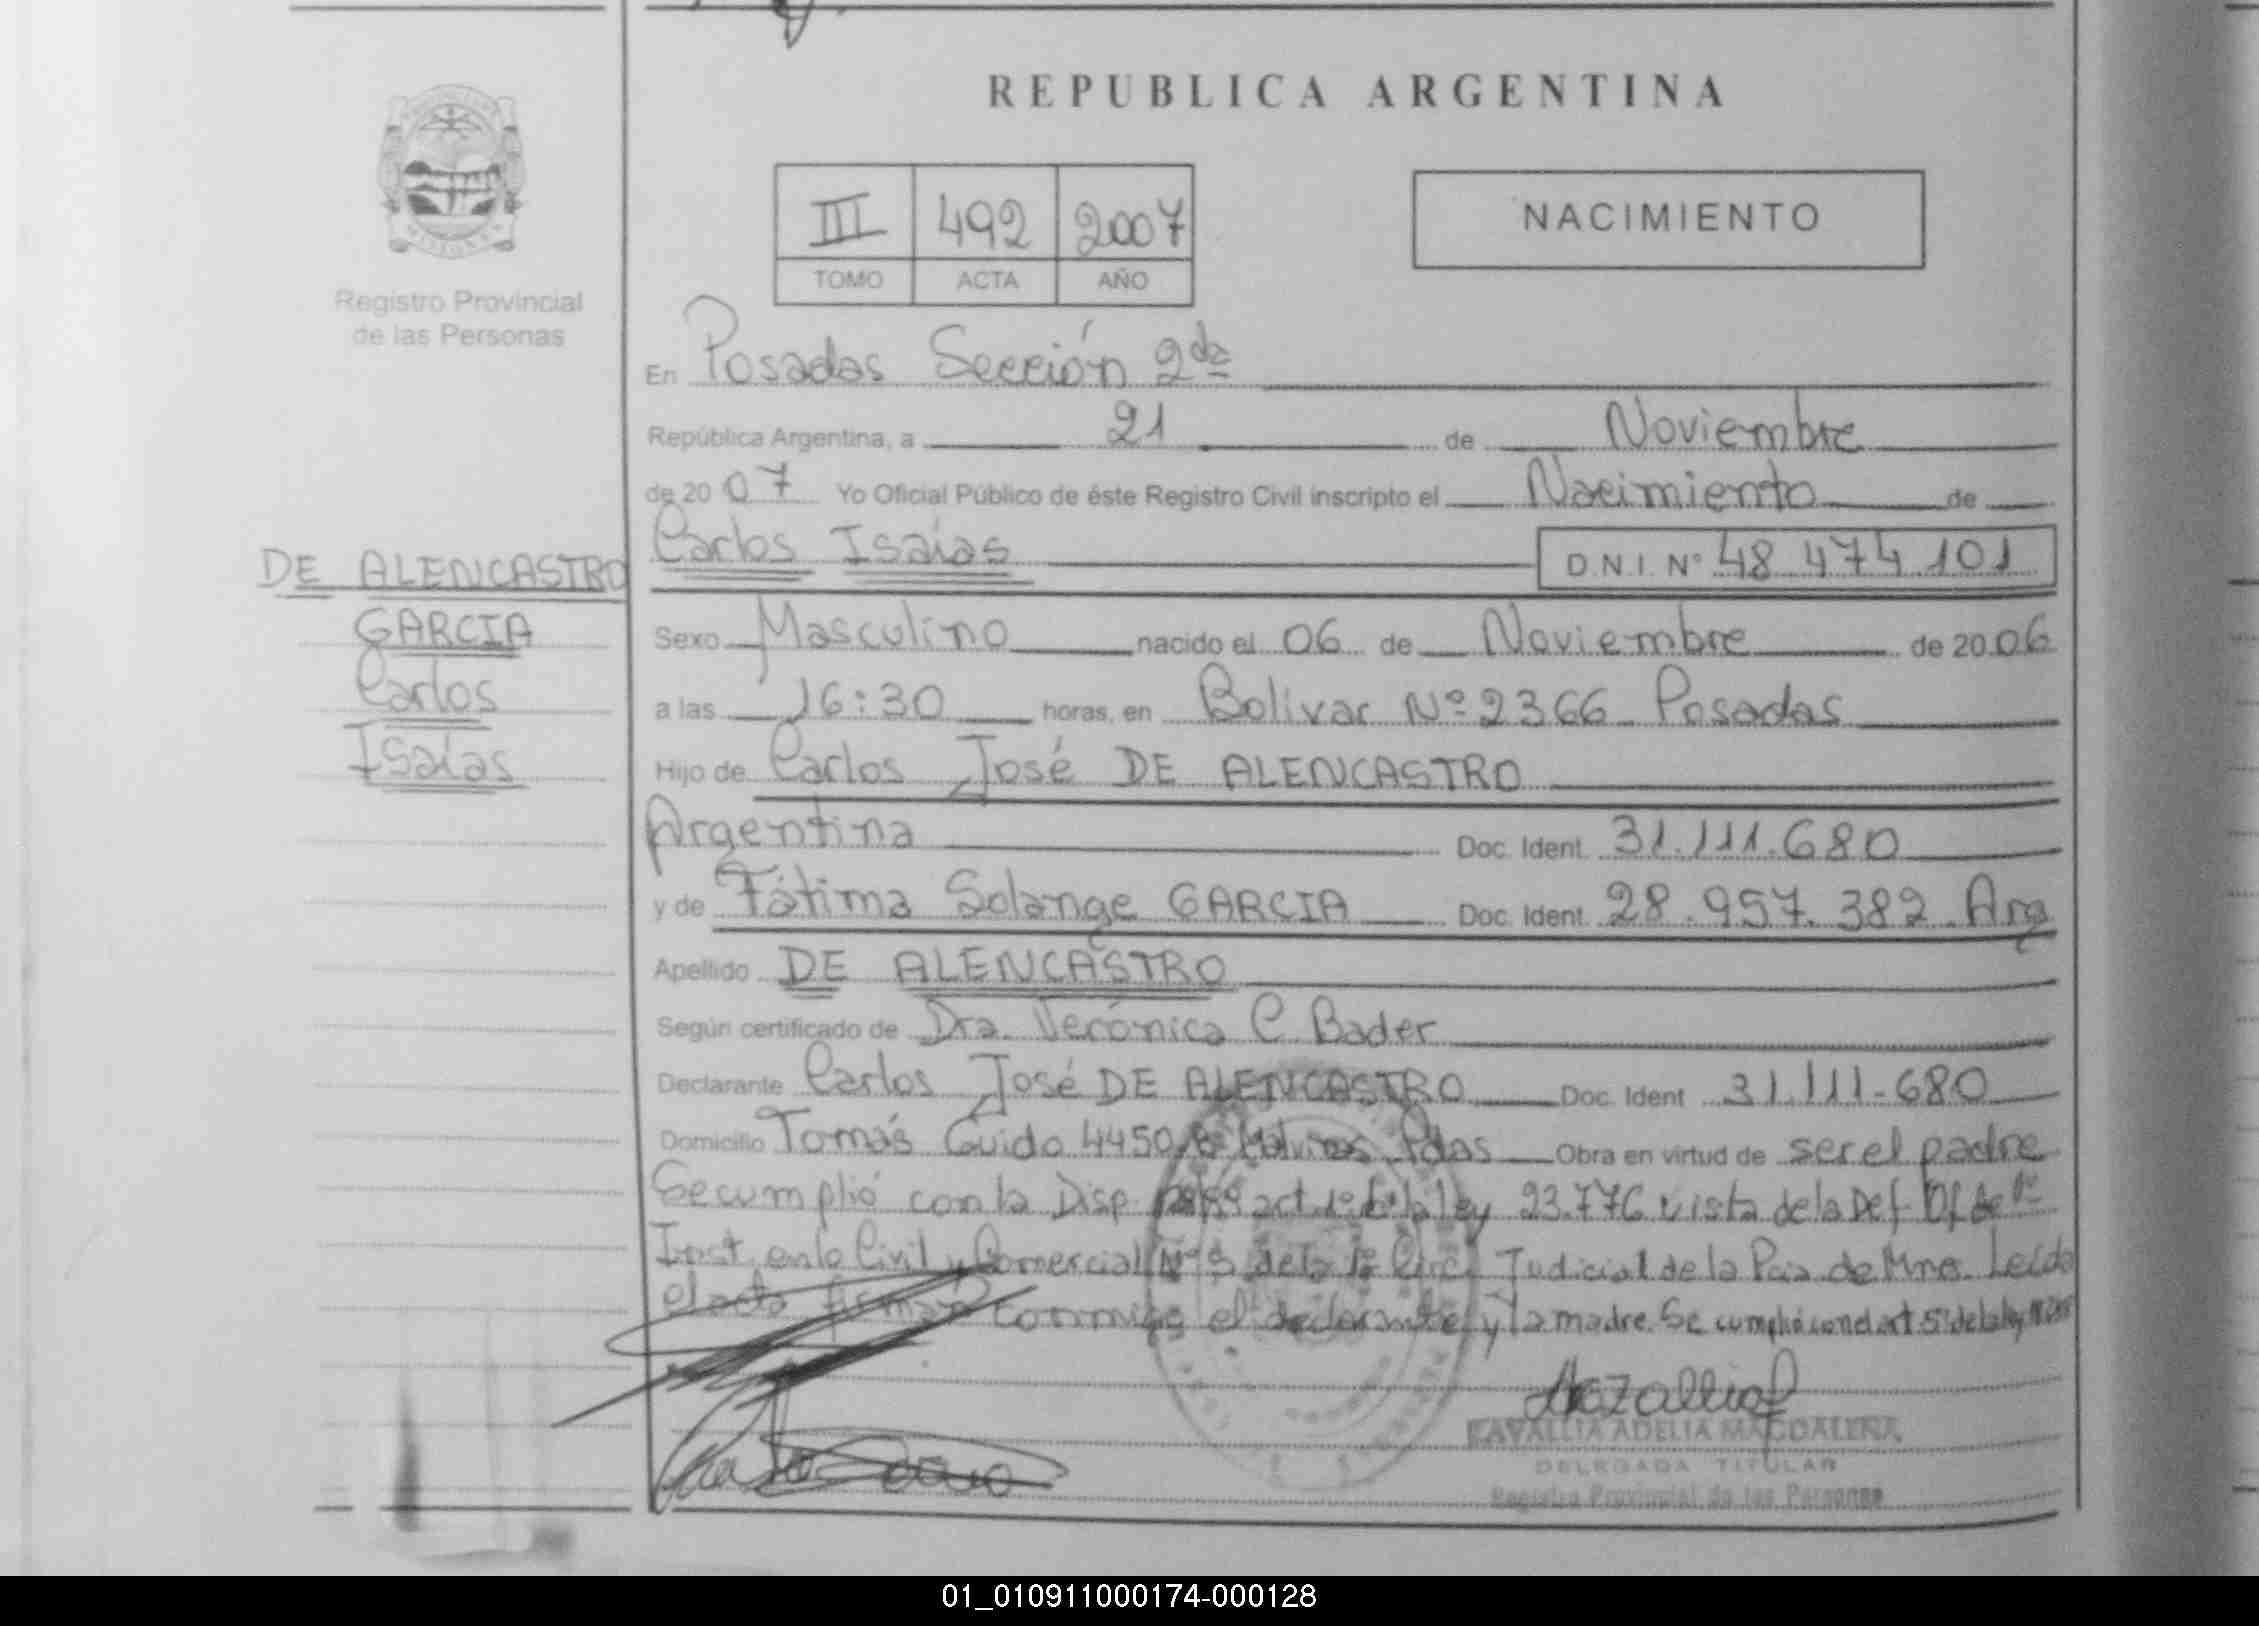 REPUBLICA ARGENTINA
III 492 2007
TOMO ACTA AÑO
NACIMIENTO
MISIONES
Registro Provincial
de las Personas
En Posadas Sección 2da
República Argentina, a 21 de Noviembre
de 2007 Yo Oficial Público de éste Registro Civil inscripto el Nacimiento de
Carlos Isaías D.N.I. Nº 48 474 101
DE ALENCASTRO
GARCIA
Carlos
Isaías
Sexo Masculino nacido el 06 de Noviembre de 2006
a las 16:30 horas, en Bolivar Nº 2366 Posadas
Hijo de Carlos José DE ALENCASTRO
Argentina Doc. Ident. 31.111.680
y de Fátima Solange GARCIA Doc. Ident. 28.957.382 Arg
Apellido DE ALENCASTRO
Según certificado de Dra. Verónica C. Bader
Declarante Carlos José DE ALENCASTRO Doc. Ident 31.111-680
Domicilio Tomás Guido 4450 Bº Malvinas Pdas Obra en virtud de ser el padre
Se cumplió con la Disp. act. 1º de la ley 23.776 vista de la Def. Of de 1º
Inst. en lo Civil y Comercial Nº 3 de la 1º Circ. Judicial de la Pcia de Mnes. Leída
el acta firman conmigo el declarante y la madre. Se cumplió con el art 5º de la ley
CAVALLIA ADELIA MAGDALENA
DELEGADA TITULAR
Registro Provincial de las Personas
01_010911000174-000128